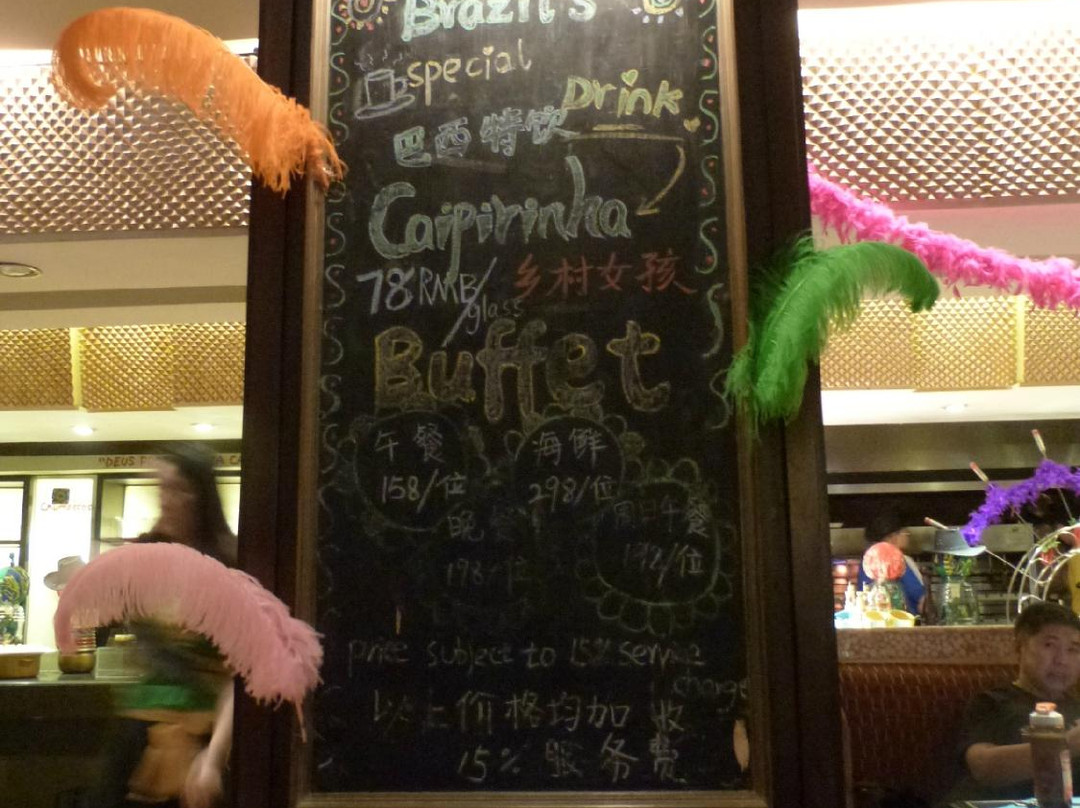 Brazil's
special
Drink
巴西特饮
Caipirinha
78RMB/glass
乡村女孩
Buffet
午餐
158/位
海鲜
298/位
晚餐
198/位
周日午餐
192/位
price subject to 15% service charge
以上价格均加收
15% 服务费
"DEUS